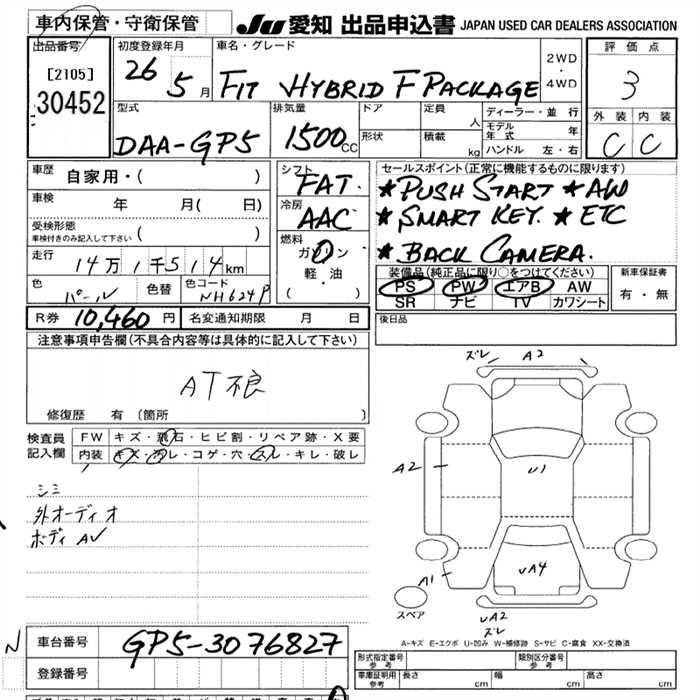 車内保管・守衛保管
JU 愛知 出品申込書 JAPAN USED CAR DEALERS ASSOCIATION
出品番号 初度登録年月 車名・グレード 2WD ・ 4WD 評価点
[2105]
30452
26 5月 FIT HYBRID F PACKAGE 3
型式 排気量 ドア 定員 人 ディーラー・並行 外装 内装
DAA-GP5 1500cc 形状 積載 kg モデル年式 年 C C
ハンドル 左・右
車歴 自家用・( ) シフト FAT セールスポイント(正常に機能するものに限ります)
車検 年 月( 日) 冷房 AAC ★PUSH START ★AW
受検形態 車検付きのみ記入して下さい ( ) 燃料 ガソリン ★SMART KEY. ★ETC
走行 14万1千514km 軽・油 ★BACK CAMERA.
( ・ ) 装備品(純正品に限り○をつけてください) 新車保証書
色 パール 色替 色コード NH624P PS PW エアB AW 有・無
SR ナビ TV カワシート
R券 10,460円 名変通知期限 月 日 後日品
注意事項申告欄(不具合内容等は具体的に記入して下さい)
AT不良
修復歴 有 (箇所 )
検査員記入欄 FW キズ・飛石・ヒビ割・リペア跡・X要
内装 キズ・汚レ・コゲ・穴・スレ・キレ・破レ
シミ
外オーディオ
ボーディAV
ズレ A2
A2 U1
A1 UA4
スペア UA2
ズレ
A-キズ E-エクボ U-凹み W-補修跡 S-サビ C-腐食 XX-交換済
車台番号 GP5-3076827
登録番号
形式指定番号 参考 類別区分番号 参考
車庫証明用 参考 長さ cm 幅 cm 高さ cm
N